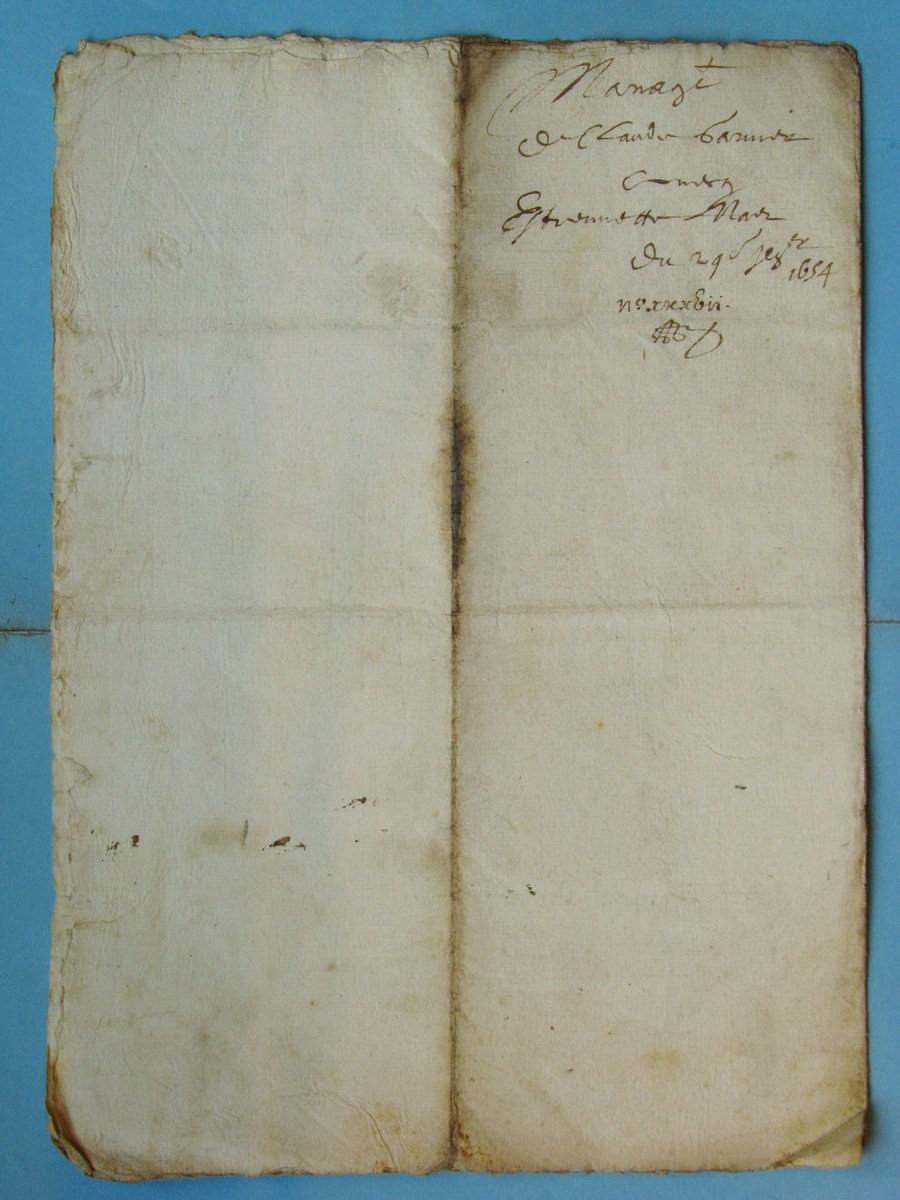 Mariage
de Claude Garnier
avecq
Estiennette Mar
du 29e 1654
no xxxvii.